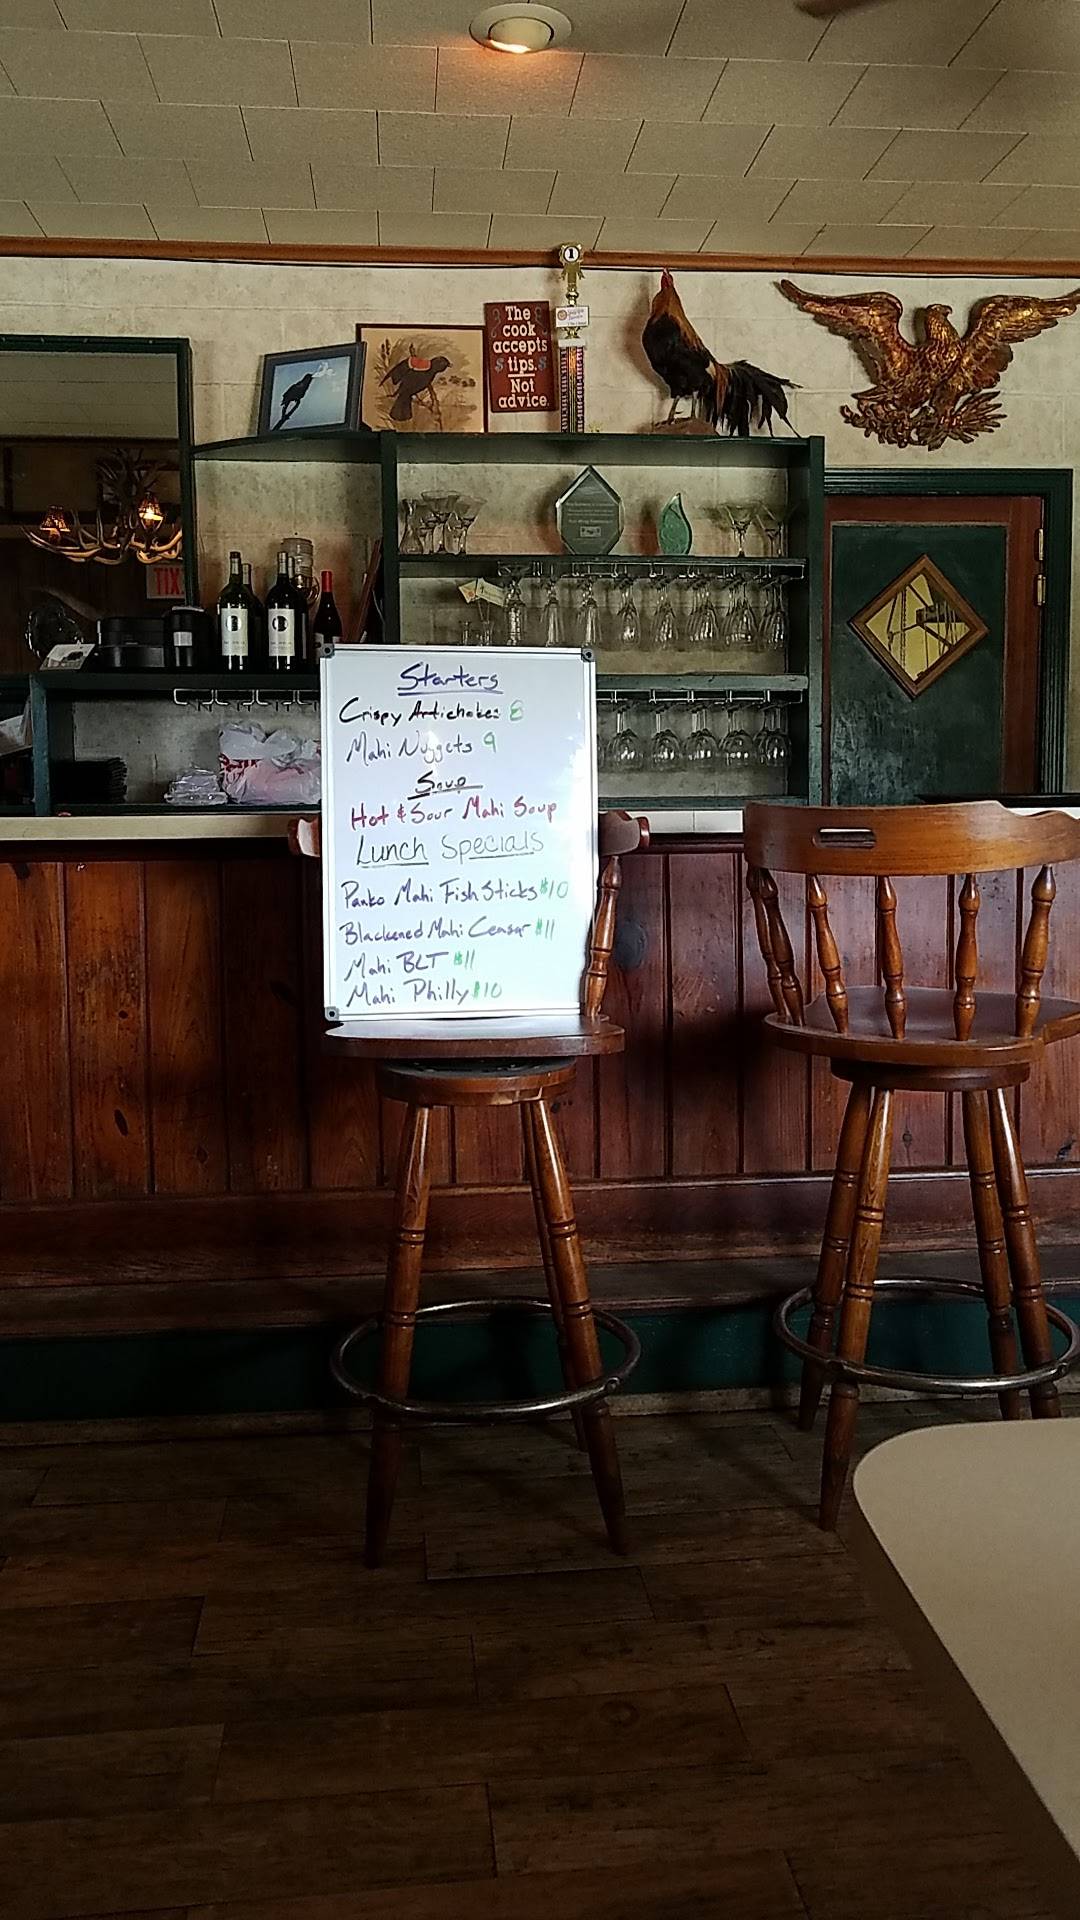 1
The
cook
accepts
$ tips. $
Not
advice.
TIX
Starters
Crispy Artichokes 8
Mahi Nuggets 9
Soup
Hot & Sour Mahi Soup
Lunch Specials
Panko Mahi Fish Sticks $10
Blackened Mahi Ceasar $11
Mahi BLT $11
Mahi Philly $10